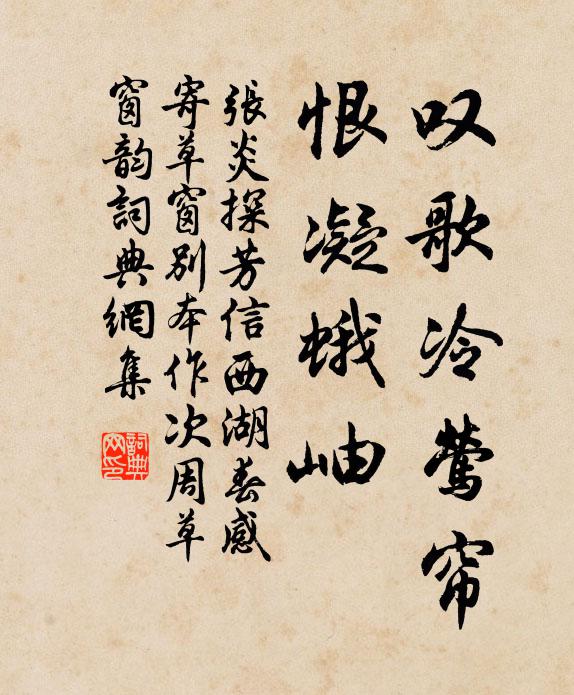 叹歌冷莺帘
恨凝蛾岫
張炎探芳信西湖春感
寄草窗別本作次周草
窗韵詞典網集
詞典網印